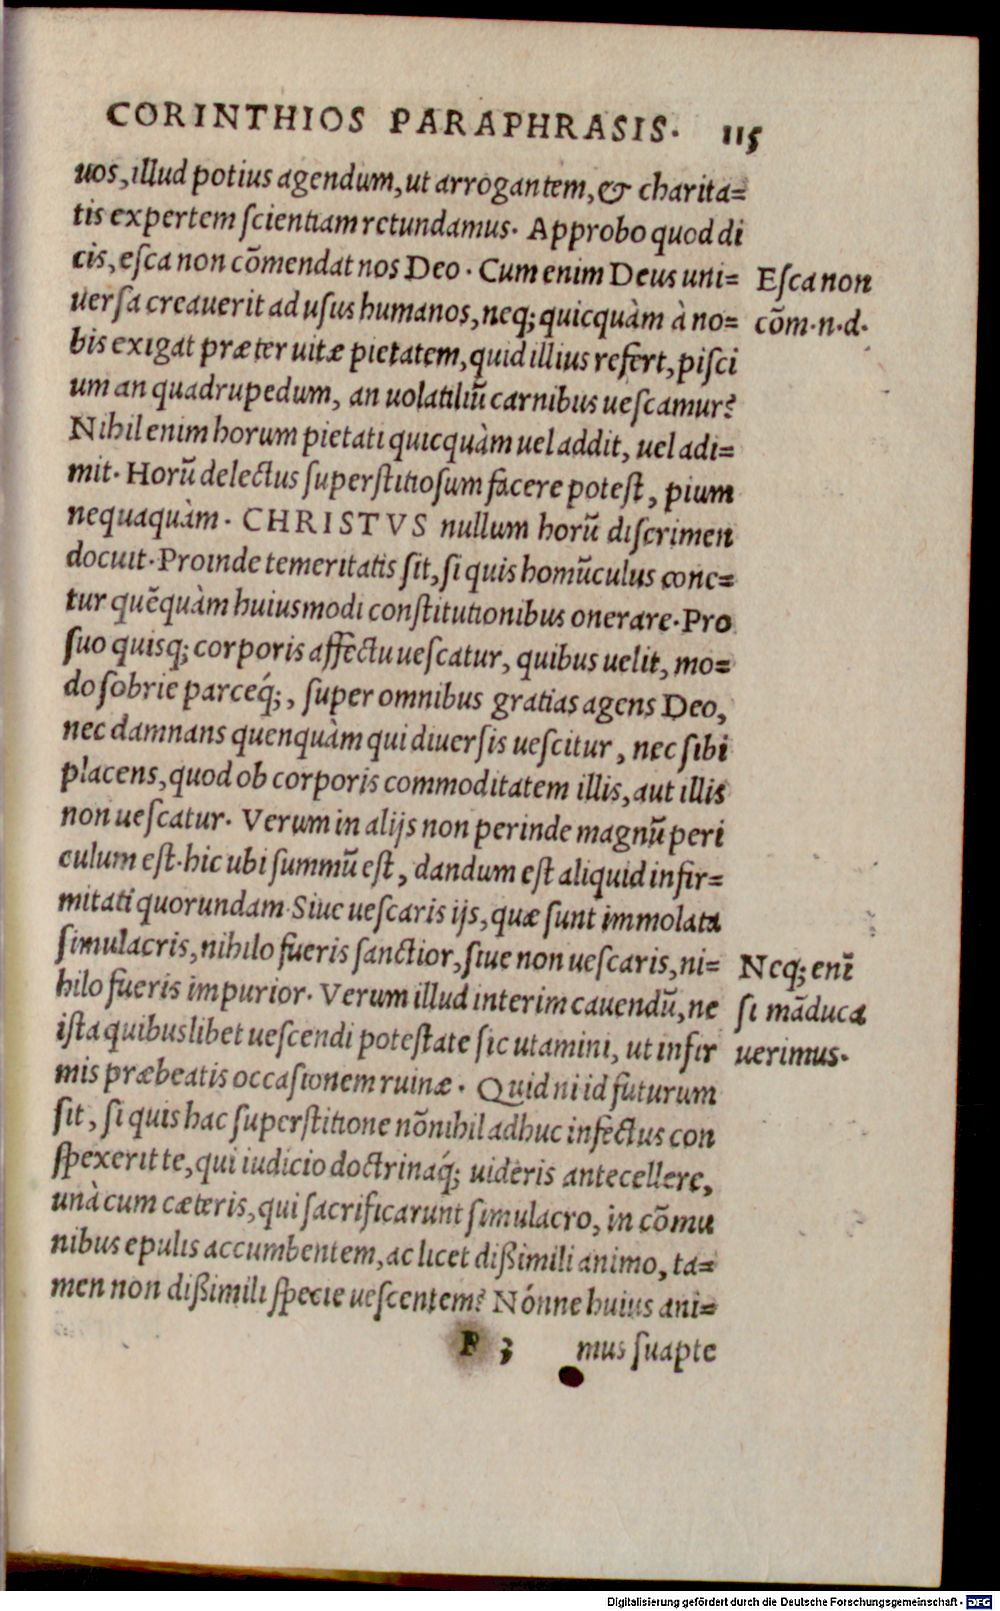 CORINTHIOS PARAPHRASIS. 115
uos, illud potius agendum, ut arrogantem, & charita=
tis expertem ſcientiam retundamus. Approbo quod di
cis, eſca non cõmendat nos Deo. Cum enim Deus uni=
uerſa creauerit ad uſus humanos, neq; quicquàm à no=
bis exigat præter uitæ pietatem, quid illius refert, piſci
um an quadrupedum, an uolatiliũ carnibus ueſcamur?
Nihil enim horum pietati quicquàm uel addit, uel adi=
mit. Horũ delectus ſuperſtitioſum facere poteſt, pium
nequaquàm. CHRISTVS nullum horũ diſcrimen
docuit. Proinde temeritatis ſit, ſi quis homũculus cone=
tur quẽquàm huiusmodi conſtitutionibus onerare. Pro
ſuo quisq; corporis affectu ueſcatur, quibus uelit, mo=
do ſobrie parceq́;, ſuper omnibus gratias agens Deo,
nec damnans quenquàm qui diuerſis ueſcitur, nec ſibi
placens, quod ob corporis commoditatem illis, aut illis
non ueſcatur. Verum in alijs non perinde magnũ peri
culum eſt. hic ubi ſummũ eſt, dandum eſt aliquid infir=
mitati quorundam. Siue ueſcaris ijs, quæ ſunt immolata
ſimulacris, nihilo fueris ſanctior, ſiue non ueſcaris, ni=
hilo fueris impurior. Verum illud interim cauendũ, ne
iſta quibuslibet ueſcendi poteſtate ſic utamini, ut infir
mis præbeatis occaſionem ruinæ. Quid ni id futurum
ſit, ſi quis hac ſuperſtitione nõnihil adhuc infectus con
ſpexerit te, qui iudicio doctrinaq́; uideris antecellere,
unà cum cæteris, qui ſacrificarunt ſimulacro, in cõmu
nibus epulis accumbentem, ac licet dißimili animo, ta=
men non dißimili ſpecie ueſcentem? Nónne huius ani=
P 3 mus ſuapte
Eſca non
cõm. n. d.
Neq; enĩ
ſi mãduca
uerimus.
Digitalisierung gefördert durch die Deutsche Forschungsgemeinschaft - DFG